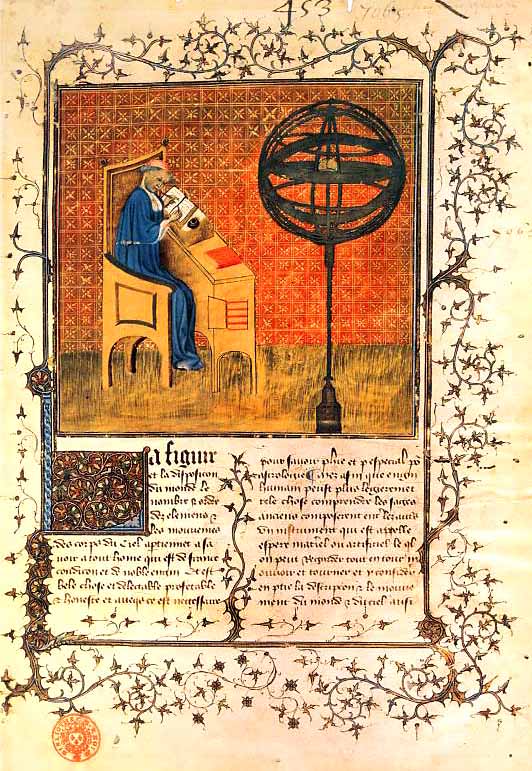 453
7065
a figure
et la disposition
du monde le
nombre & ordre
des elemens &
les mouvemens
des corps du ciel aptiennet a sa
voir a tout home qui est de franc
condicion et de noble engin Et est
bele chose et delectable profetable
& honneste et avecq's ce est necessaire
pour savoir phie et p especial po
astrologie Et
humain puist plus legierement
tele chose comprendre les sages
anciens composerent
un instrument qui est appelle
espere materiel ou artificiel le ql
on peut regarder tout en tour
et tourner et y considerer
en ptie la descripcion & le mouve
ment du monde & du ciel aussi